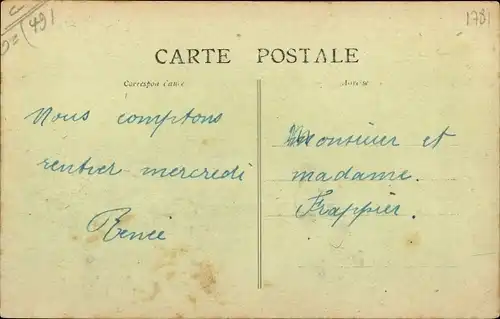 (491
1781
CARTE POSTALE
Correspondance
Adresse
Nous comptons
rentrer mercredi
Renée
Monsieur et
madame.
Frappier.